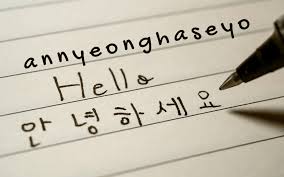 annyeonghaseyo
Hello
안녕하세요